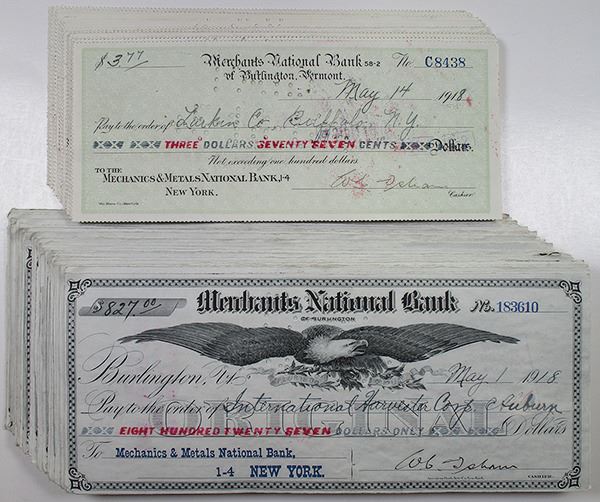 $3.77 Merchants National Bank 58-2 No C8438
of Burlington, Vermont.
May 14 1918
Pay to the order of Larkin Co., Buffalo N.Y.
THREE DOLLARS SEVENTY SEVEN CENTS Dollars
Not exceeding one hundred dollars
TO THE
MECHANICS & METALS NATIONAL BANK, 1-4
NEW YORK.
W.C. Isham
Cashier
$827.00 Merchants National Bank No. 183610
OF BURLINGTON
Burlington, Vt May 1 1918
Pay to the order of International Harvester Corp, Auburn
EIGHT HUNDRED TWENTY SEVEN DOLLARS ONLY Dollars
To Mechanics & Metals National Bank,
1-4 NEW YORK.
W.C. Isham
CASHIER